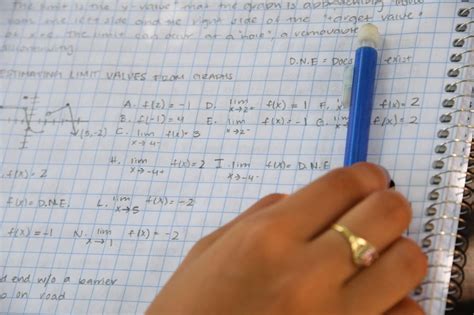 The limit is the y-value that the graph is approaching
from the left side and the right side of the "target value"
of x. The limit can occur at a "hole", a removable
discontinuity.
D.N.E = Does exist
ESTIMATING LIMIT VALUES FROM GRAPHS
A. f(2) = -1 D. lim x→2+ f(x) = 1 F. f(x) = 2
B. f(-1) = 4 E. lim x→2- f(x) = -1 G. lim f(x) = 2
(5,-2) C. lim x→4- f(x) = 3
H. lim x→-4+ f(x) = 2 I. lim x→-4- f(x) = D.N.E
f(x) = 2
f(x) = D.N.E; L. lim x→5 f(x) = -2
f(x) = -1 N. lim x→1 f(x) = -2
end w/o a barrier
on road